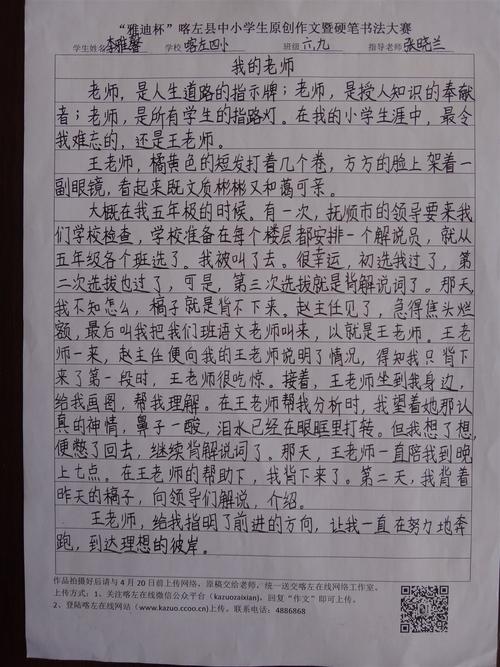 “雅迪杯”喀左县中小学生原创作文暨硬笔书法大赛
学生姓名 李雅馨 学校 喀左四小 班级 六、九 指导老师 张晓兰
我的老师
老师，是人生道路的指示牌；老师，是授人知识的奉献
者；老师，是所有学生的指路灯。在我的小学生涯中，最令
我难忘的，还是王老师。
王老师，橘黄色的短发打着几个卷，方方的脸上架着一
副眼镜，看起来既文质彬彬又和蔼可亲。
大概在我五年极的时候。有一次，抚顺市的领导要来我
们学校检查，学校准备在每个楼层都安排一个解说员，就从
五年级各个班选了。我被叫了去。很幸运，初选我过了，第
二次选拔也过了，可是，第三次选拔就是背解说词了。那天，
我不知怎么，槁子就是背不下来。赵主任见了，急得焦头烂
额，最后叫我把我们班语文老师叫来，以就是王老师。王老
师一来，赵主任便向我的王老师说明了情况，得知我只背下
来了第一段时，王老师很吃惊。接着，王老师坐到我身边，
给我画图，帮我理解。在王老师帮我分析时，我望着她那认
真的神情，鼻子一酸，泪水已经在眼眶里打转。但我想了想，
便憋了回去，继续背解说词了。那天，王老师一直陪我到晚
上七点。在王老师的帮助下，我背下来了。第二天，我背着
昨天的槁子，向领导们解说，介绍。
王老师，给我指明了前进的方向，让我一直在努力地奔
跑，到达理想的彼岸。
作品拍摄好后请与 4 月 20 日前上传网络，原稿交给老师，统一送交喀左在线网络工作室。
上传方式：1、关注喀左在线微信公众平台（kazuozaixian），回复“作文”即可上传。
2、登陆喀左在线网站（www.kazuo.ccoo.cn)上传。联系电话：4886868